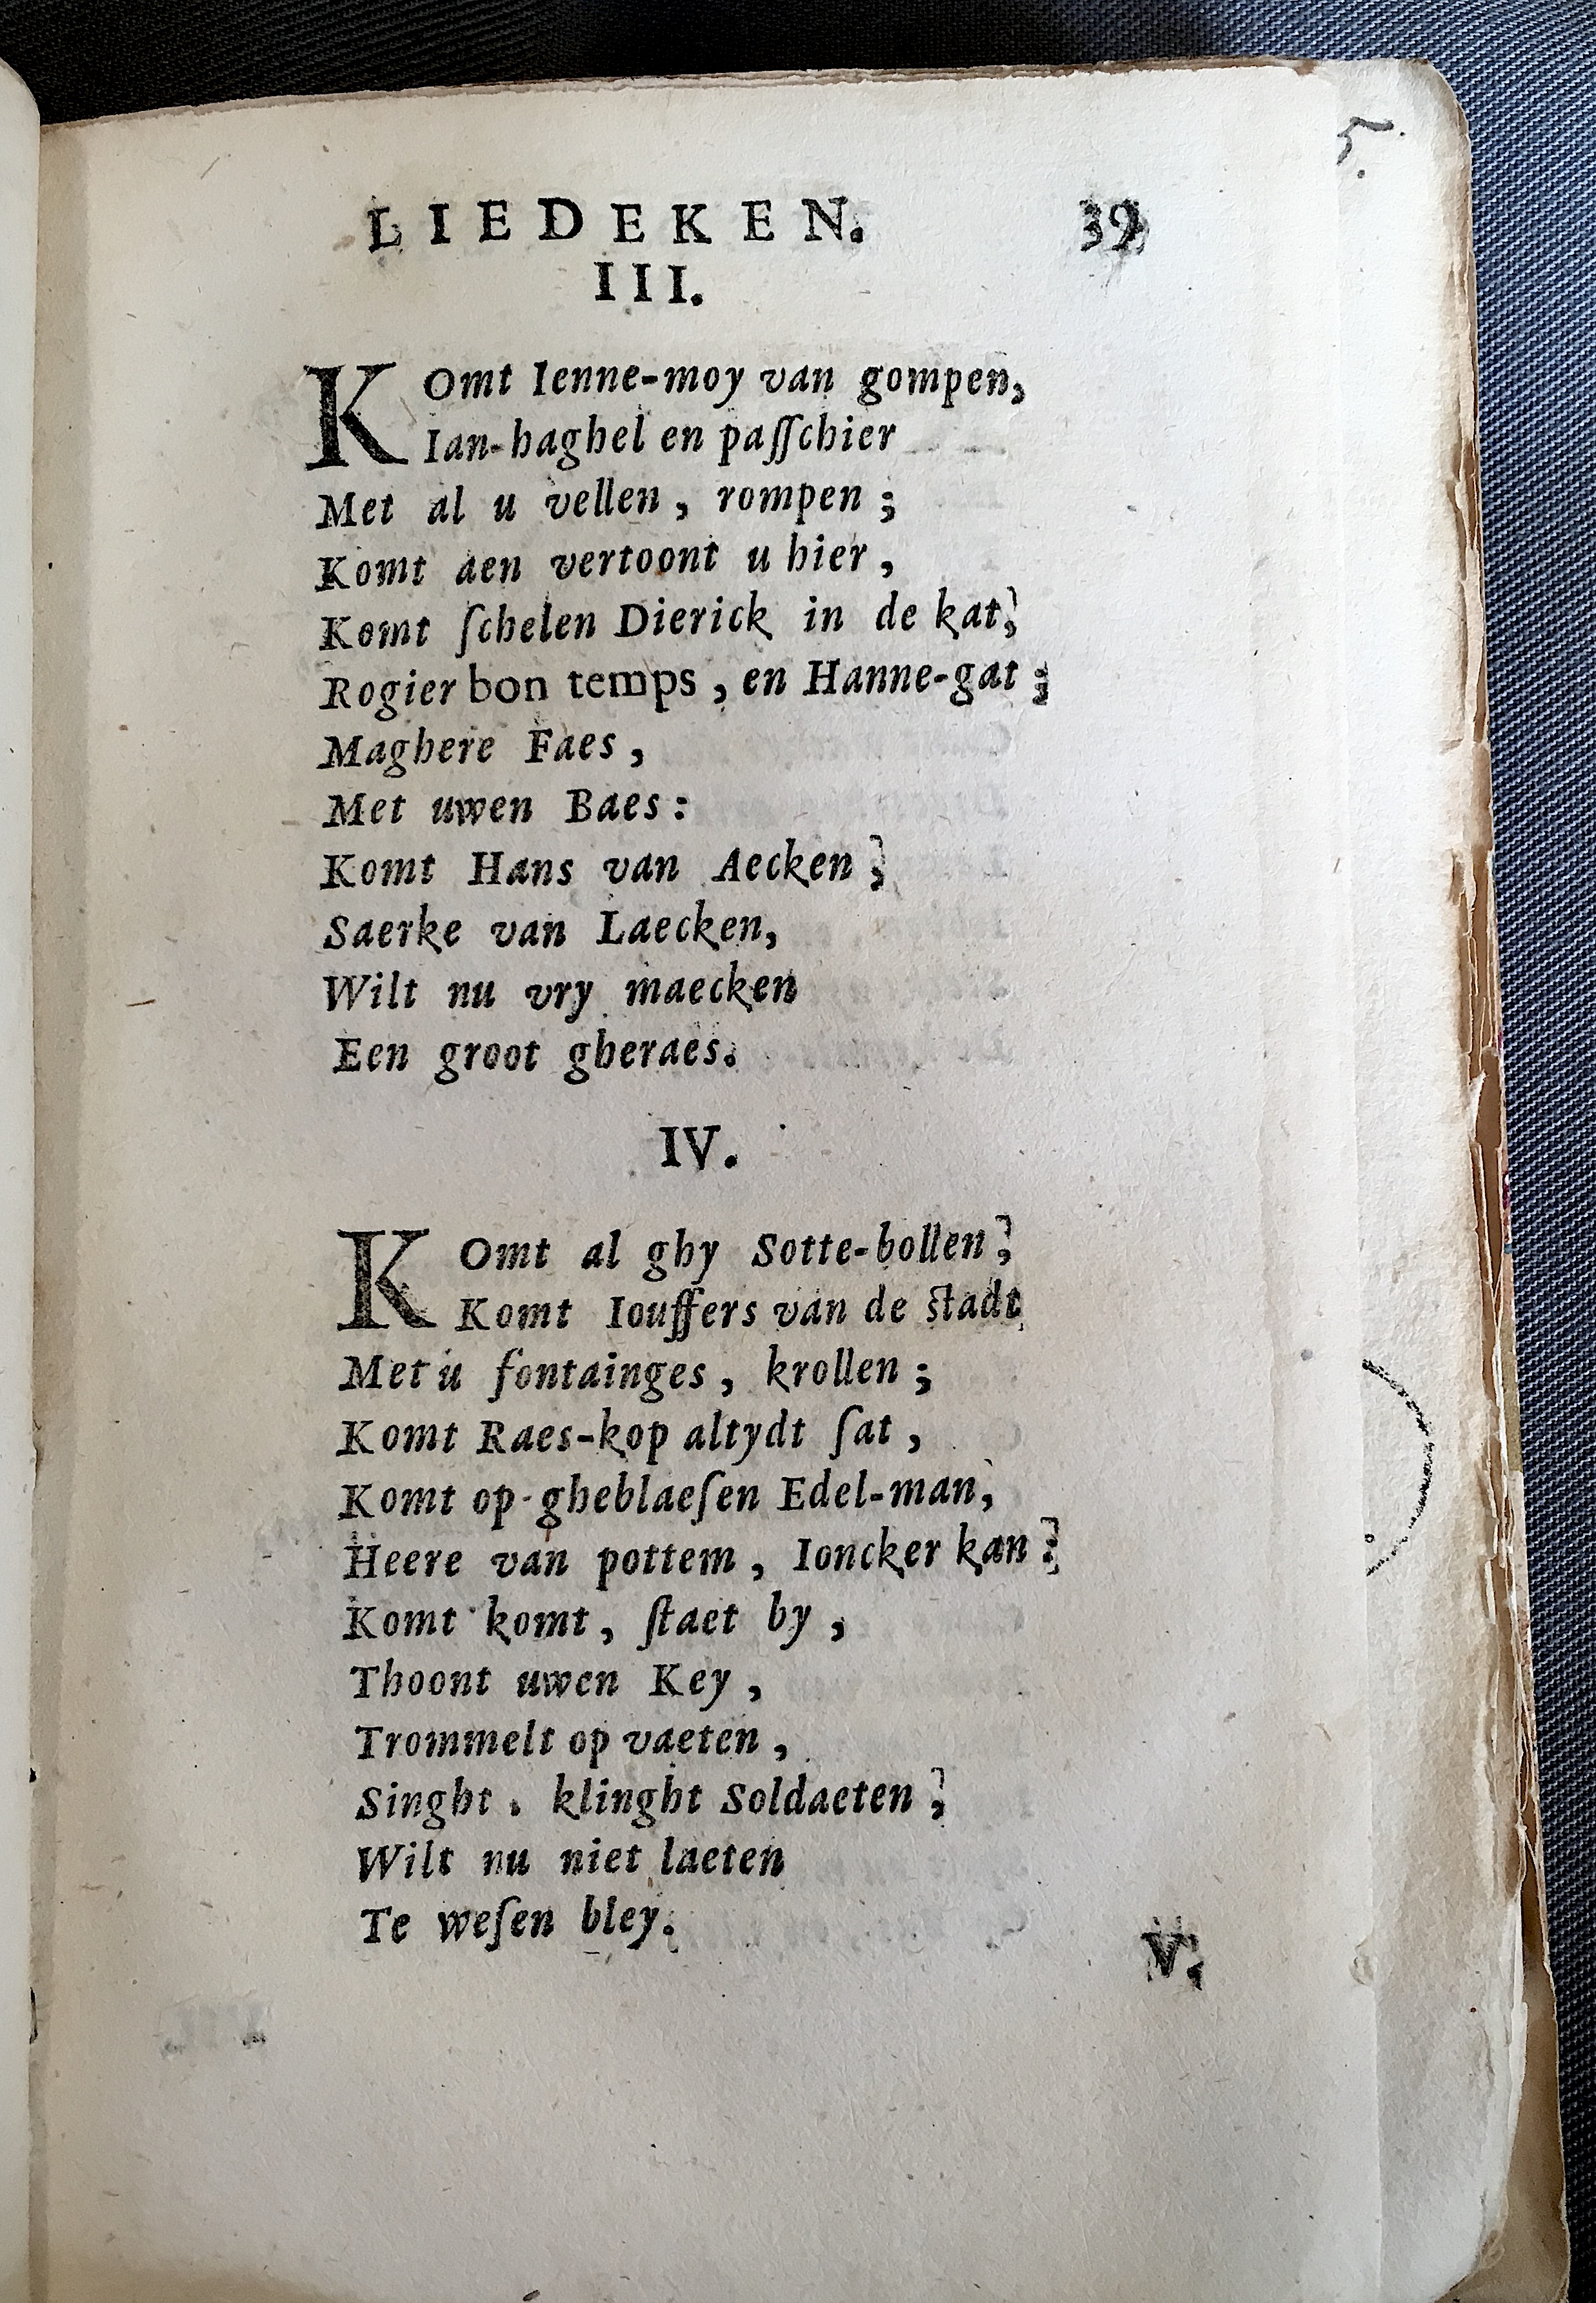 5.
LIEDEKEN. 39
III.
KOmt Ienne-moy van gompen,
Ian-haghel en paſſchier
Met al u vellen, rompen;
Komt aen vertoont u hier,
Komt ſchelen Dierick in de kat;
Rogier bon temps, en Hanne-gat;
Maghere Faes,
Met uwen Baes:
Komt Hans van Aecken;
Saerke van Laecken,
Wilt nu vry maecken
Een groot gheraes.
IV.
KOmt al ghy Sotte-bollen;
Komt Iouffers van de stadt
Met u fontainges, krollen;
Komt Raes-kop altydt ſat,
Komt op-gheblaeſen Edel-man,
Heere van pottem, Ioncker kan;
Komt komt, ſtaet by,
Thoont uwen Key,
Trommelt op vaeten,
Singht. klinght Soldaeten;
Wilt nu niet laeten
Te weſen bley.
V.